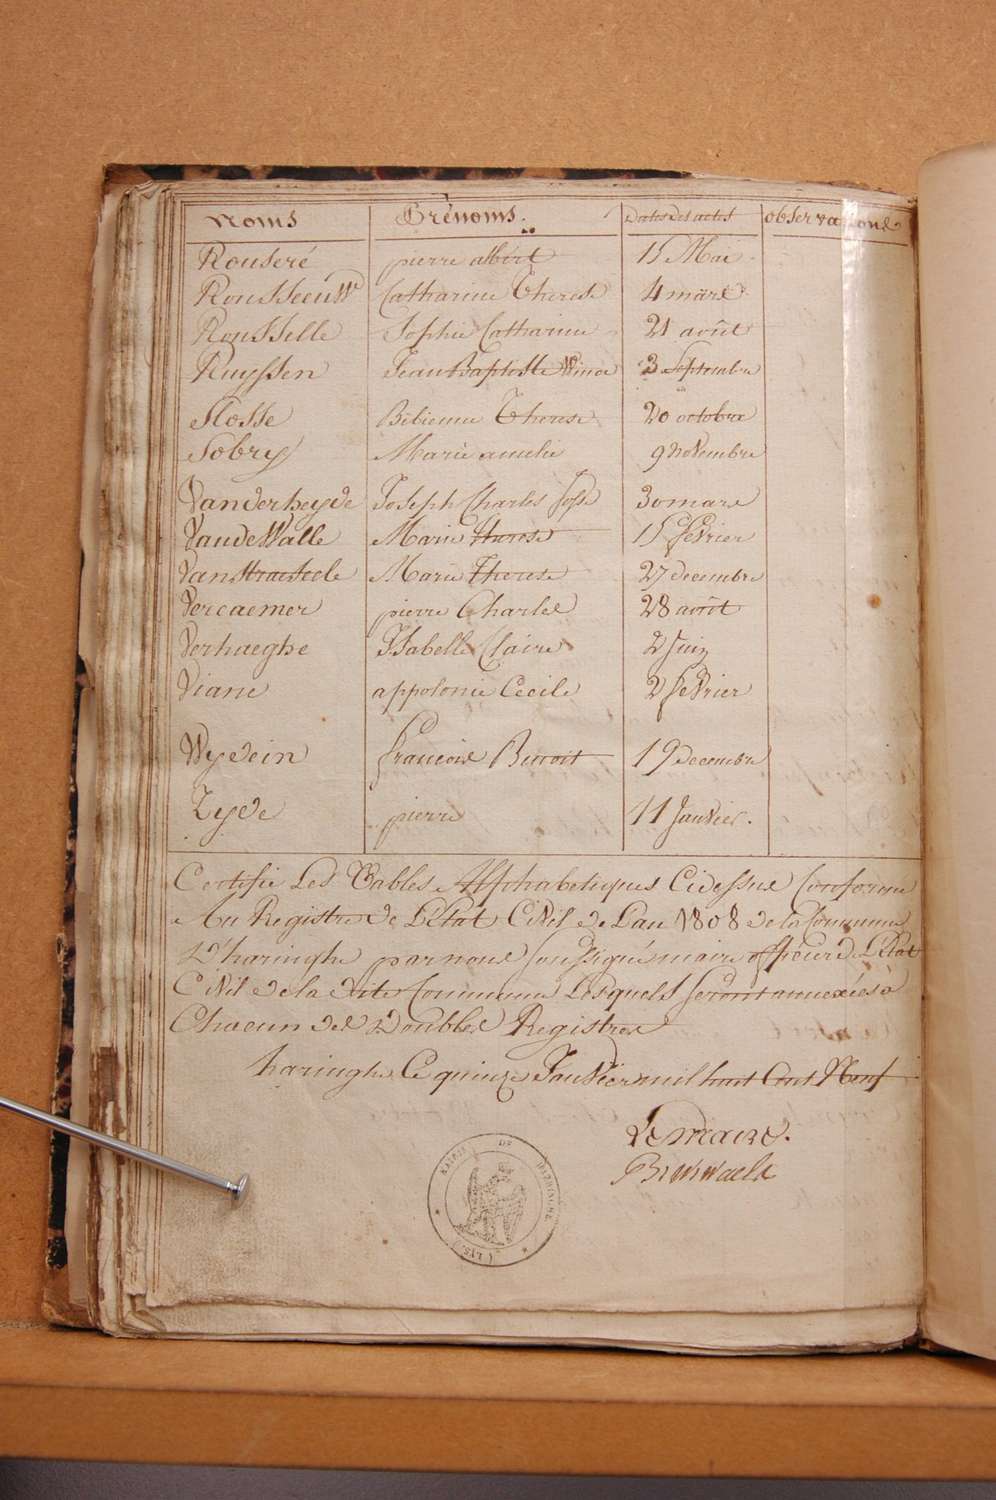 Noms Prénoms. Dates des actes observations
Rouseré pierre albert 15 Mai
RousseeuW Catharine Therese 4 mars
Rousselle Sophie Catharine 21 août
Ruyssen Jean Baptiste Winoc 3 Septembre
Slosse Bibienne Therese 20 octobre
Sobry Marie amelie 9 novembre
Vanderheyde Joseph Charles 30 mars
VandeWalle Marie Therese 15 fevrier
Vanstraeseele Marie Therese 27 decembre
Vercaemer pierre Charles 28 août
Verhaeghe Isabelle Claire 2 Juin
Viane appolonie Cecile 2 fevrier
Wydein francois Benoit 19 decembre
Zyde pierre 11 Janvier.
Certifie Les Tables Alphabetiques Cidessus Conforme
Au Registre de L'Etat Civil de L'an 1808 de la Commune
D'haringhe par nous soussigné maire officier de L'Etat
Civil de la dite Commune Lesquels seront annexées à
Chacun des Doubles Registres
haringhe Ce quinze Janvier mil huit Cent Neuf
Le maire.
MAIRIE DE HARINGHE
(LYS.)